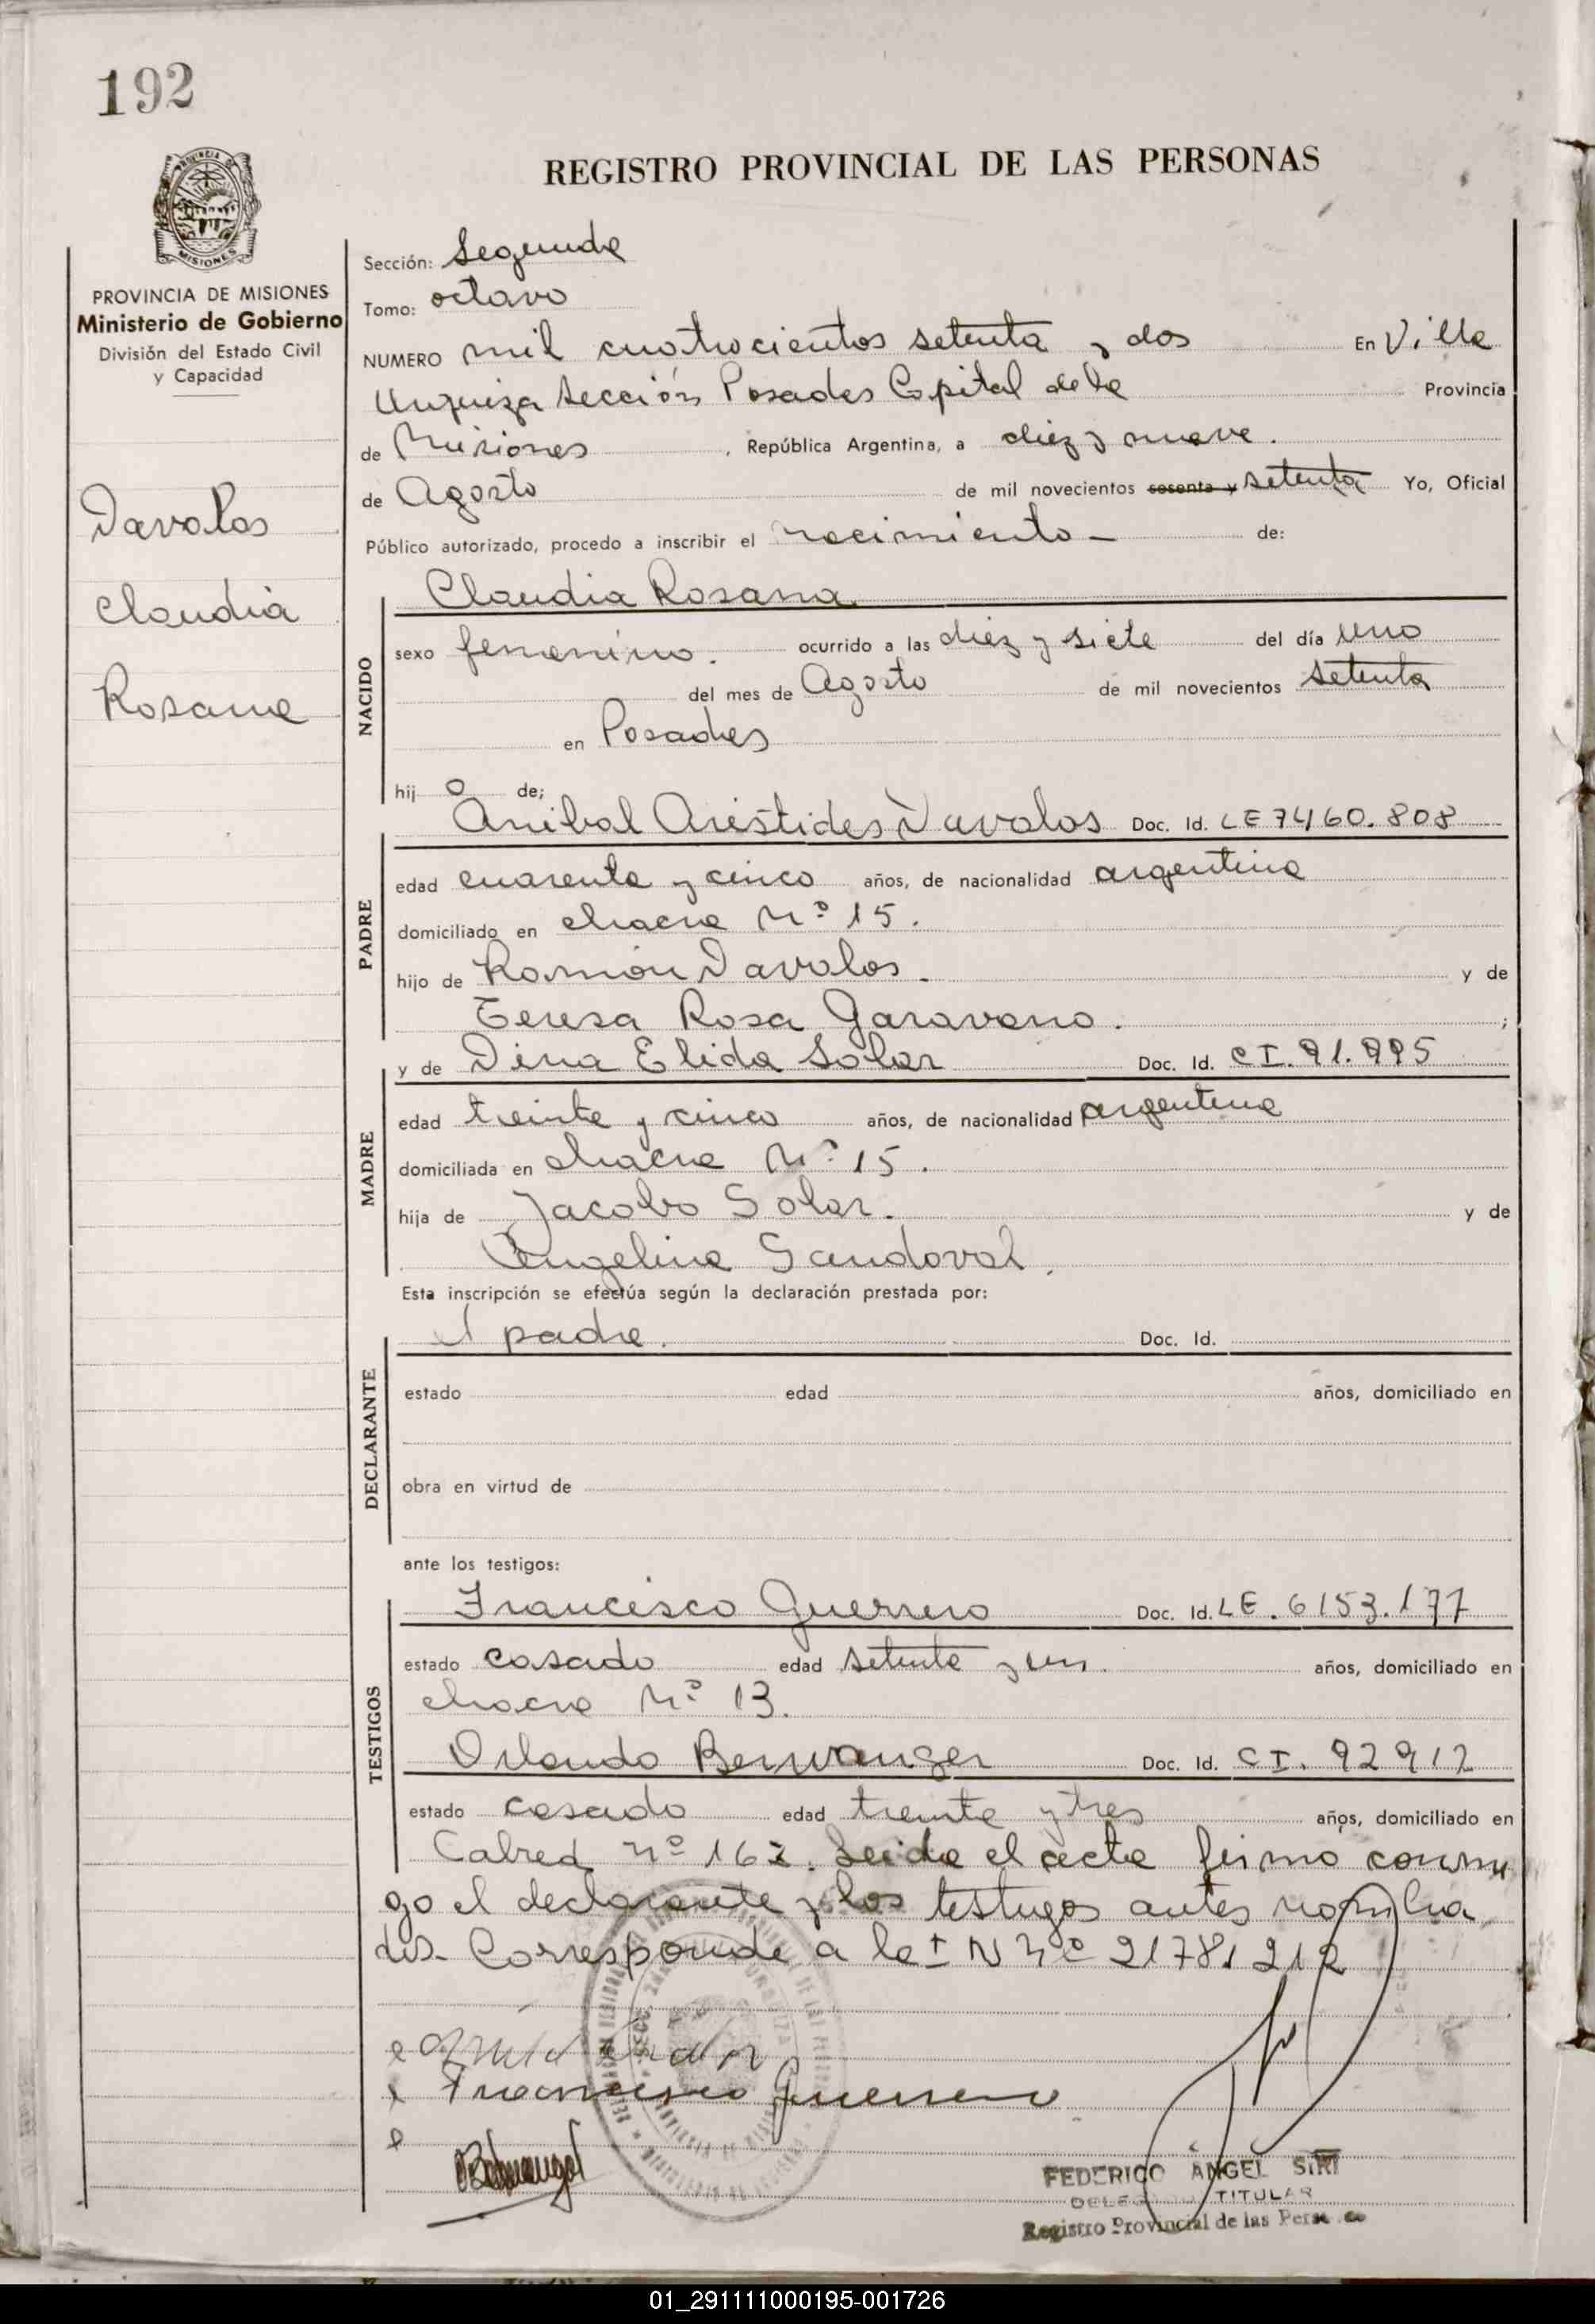 192
REGISTRO PROVINCIAL DE LAS PERSONAS
PROVINCIA DE
MISIONES
PROVINCIA DE MISIONES
Ministerio de Gobierno
División del Estado Civil
y Capacidad
Davalos
Claudia
Rosana
Sección: Segunda
Tomo: octavo
NUMERO mil cuatrocientos setenta y dos En Villa
Urquiza Sección Posadas Capital de la Provincia
de Misiones, República Argentina, a diez y nueve.
de Agosto de mil novecientos sesenta y setenta Yo, Oficial
Público autorizado, procedo a inscribir el nacimiento - de:
Claudia Rosana
NACIDO
sexo femenino. ocurrido a las diez y siete del día uno
del mes de Agosto de mil novecientos setenta
en Posadas
hij a de;
Anibal Aristides Davalos Doc. Id. LE 7460.808
PADRE
edad cuarenta y cinco años, de nacionalidad argentina
domiciliado en chacra Nº 15.
hijo de Ramón Davalos. y de
Teresa Rosa Garavano. ;
y de Dina Elida Solar Doc. Id. CI. 91.995
MADRE
edad treinta y cinco años, de nacionalidad argentina
domiciliada en chacra Nº 15.
hija de Jacobo Solar. y de
Angelina Sandoval.
Esta inscripción se efectúa según la declaración prestada por:
el padre. Doc. Id.
DECLARANTE
estado edad años, domiciliado en
obra en virtud de
ante los testigos:
Francisco Guerrero Doc. Id. LE. 6153.177
TESTIGOS
estado casado edad setenta y un años, domiciliado en
chacra Nº 13.
Orlando Berwanger Doc. Id. CI. 92912
estado casado edad treinta y tres años, domiciliado en
Cabred nº 162. Leida el acta firmo conmi
go el declarante y los testigos antes nombra
dos. Corresponde a la I N nº 21781212
Francisco Guerrero
FEDERICO ANGEL SIRI
TITULAR
Registro Provincial de las Perso
01_291111000195-001726